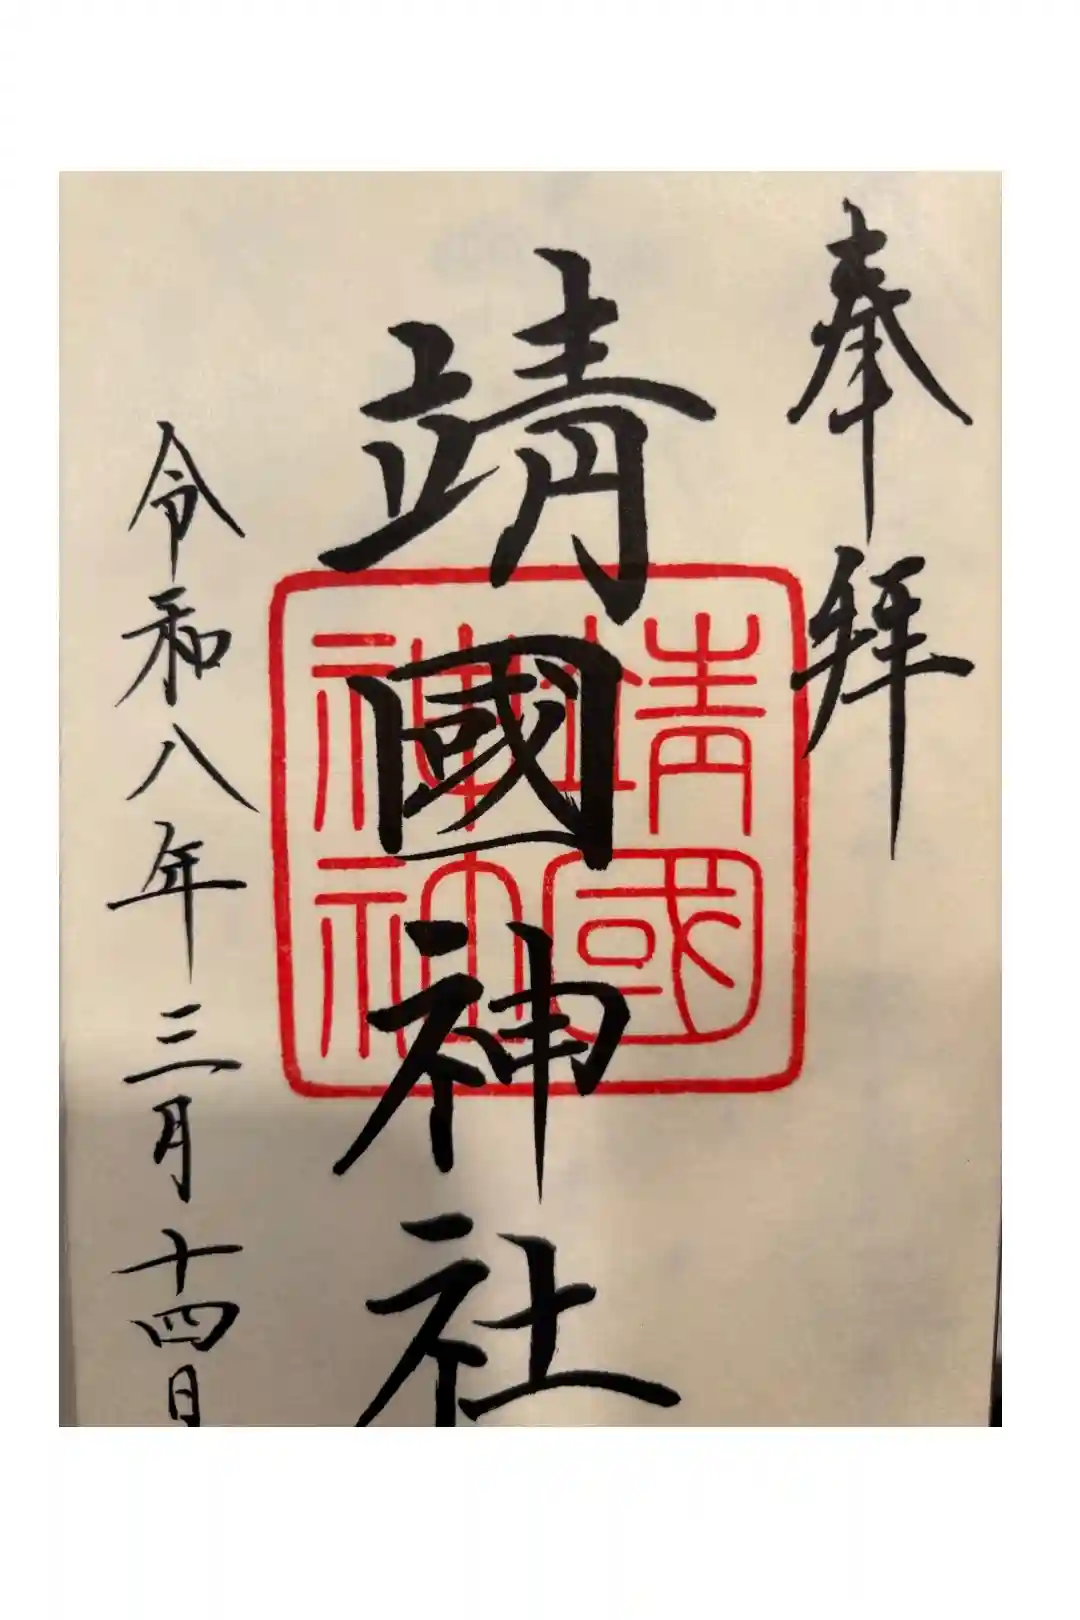 奉拜
靖國神社
靖國
神社
令和八年三月十四日